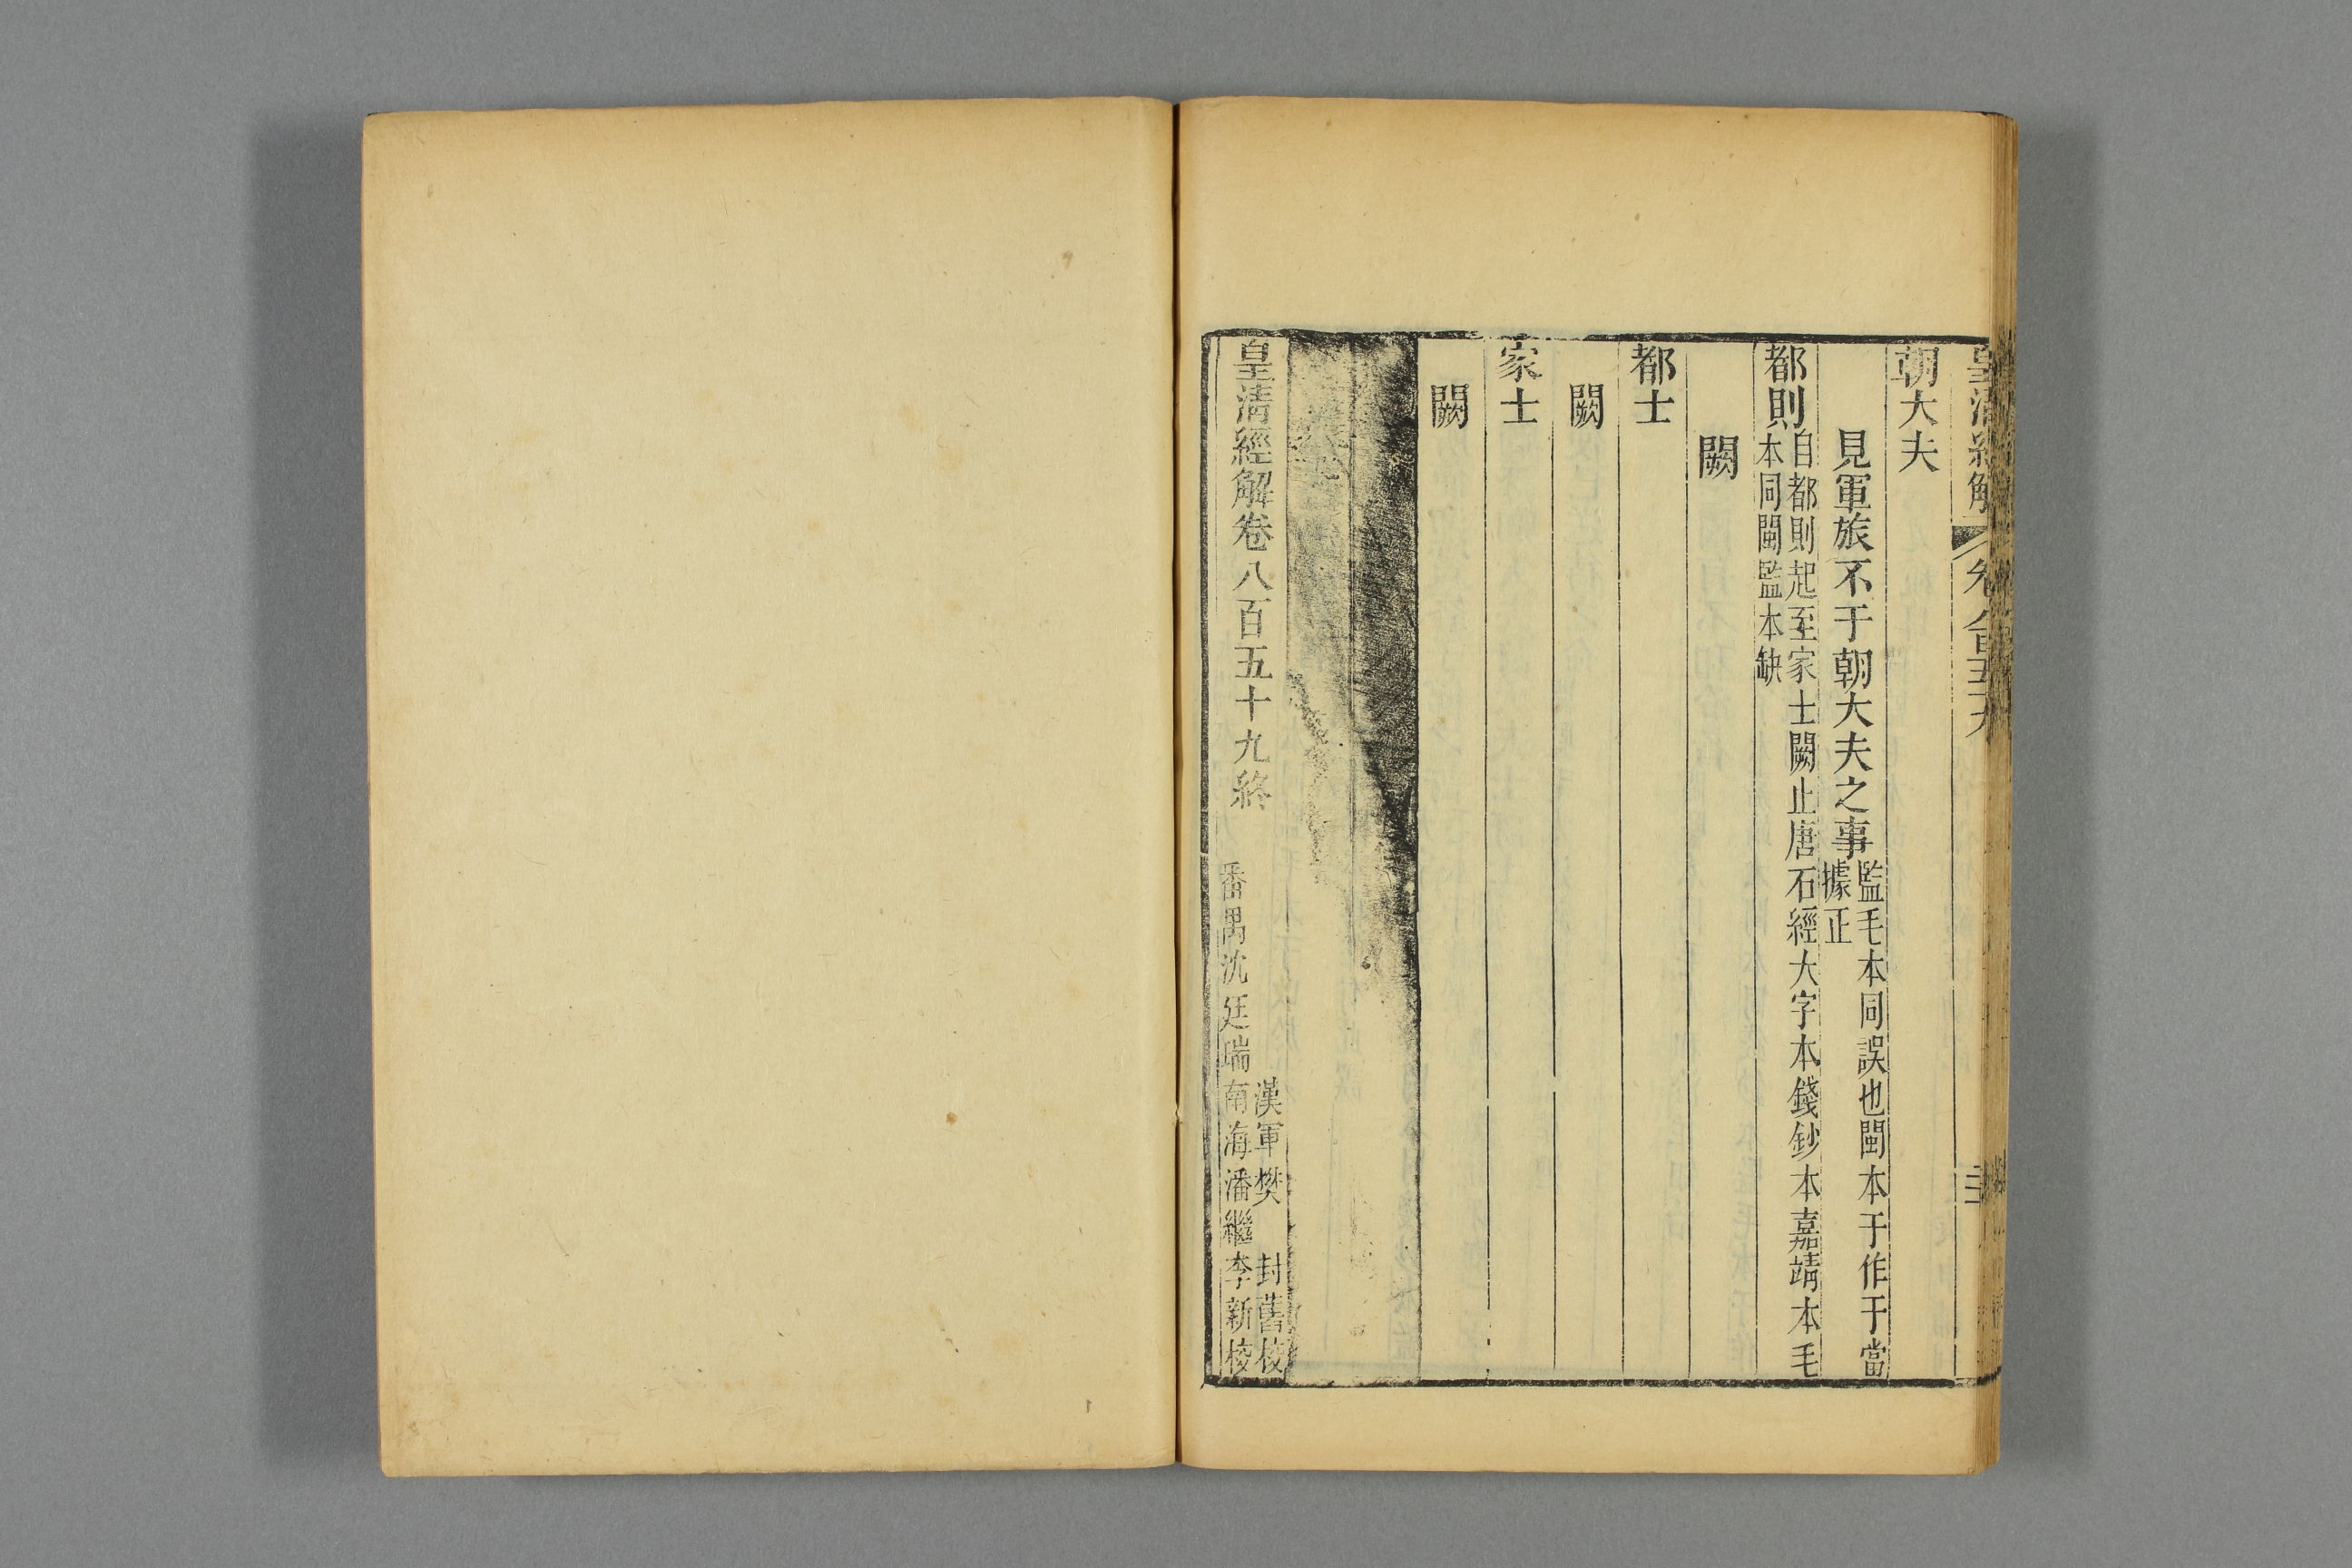 皇清經解 卷八百五十九
朝大夫
見軍旅不于朝大夫之事監毛本同誤也閩本于作于當
據正
都則自都則起至家士闕止唐石經大字本錢鈔本嘉靖本毛
本同閩監本缺
闕
都士
闕
家士
闕
皇清經解卷八百五十九終
漢軍樊 封舊校
番禺沈廷瑞南海潘繼李新校